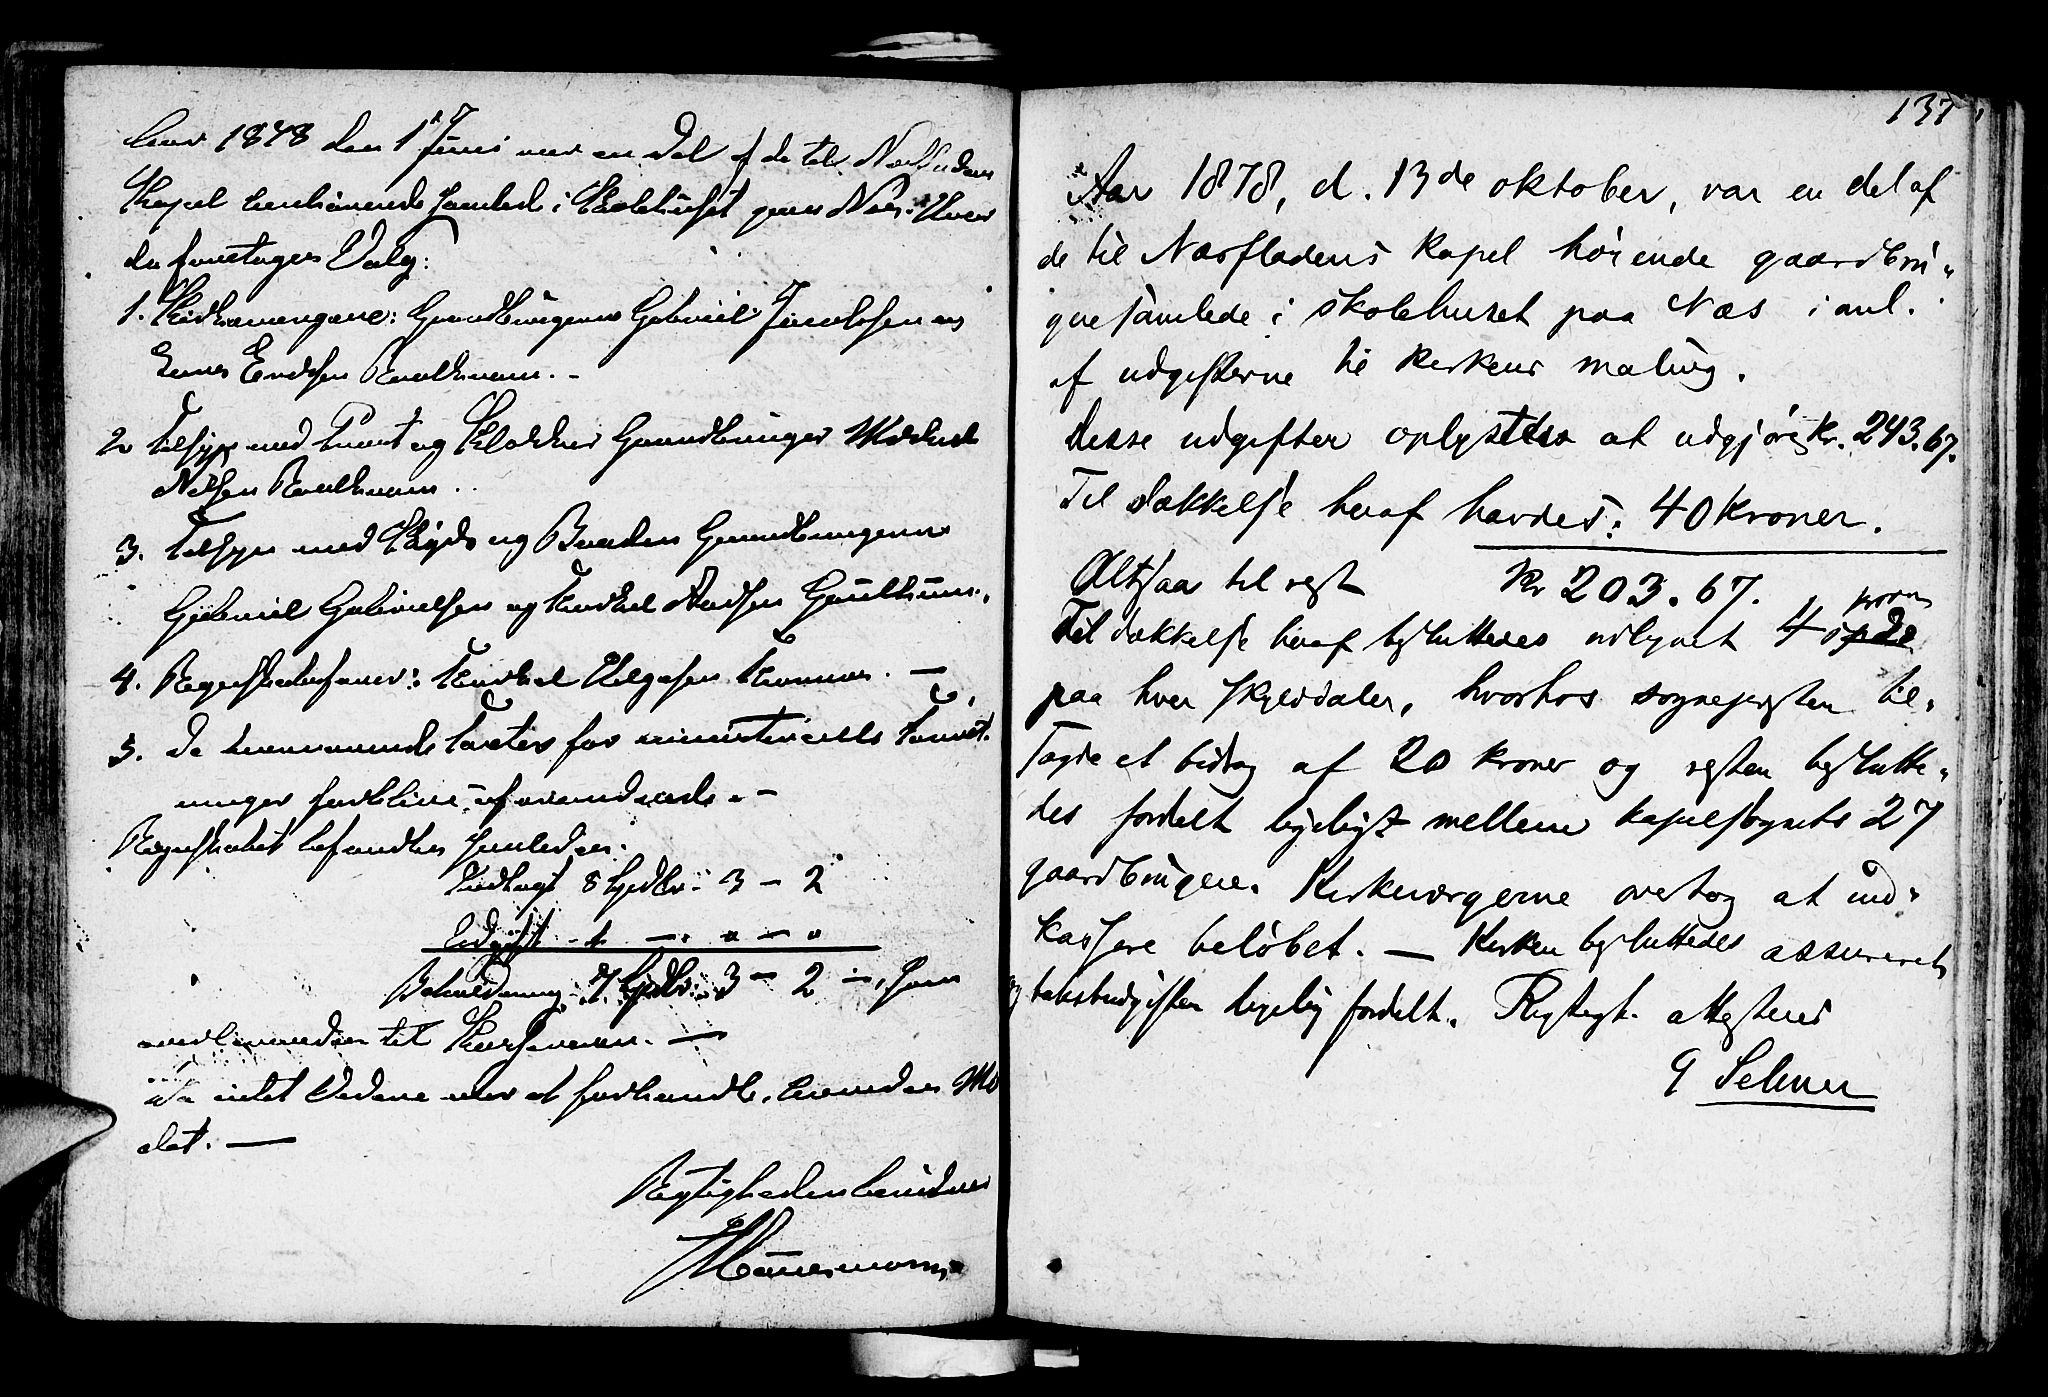 Aar 1878 den 1ste Juni var en Del af de til Nærfladens
Kapel henhørende samlede i Skolehuset paa Næs. Hvor
da foretoges Valg:
1. Kirkeværgene: Gaardbrugerne Gabriel Jonassen og
Enersen Raulkvam. –
2 Tilsyn med Præst og Klokker Gaardbruger
Nilsen Raulkvam.
3. Tilsyn med Skyds og Baaden Gaardbrugerne
Gabriel Gabrielsen og Torkel Aadsen
4. Regnskabsfører: Torkel Helgesen –
5. De nuværende Taxter for ministerielle Forret-
ninger forblive uforandrede. –
Regnskabet befandtes saaledes:
Indtægt 8 Spdlr: 3 – 2
Udgift - 1 – " – "
Beholdning 7 Spdlr: 3 – 2 –, som
–
Da intet videre var at forhandle, hævedes Mø
det. –
Rigtigheden bevidner
137
Aar 1878, d. 13de oktober, var en del af
de til Nærfladens kapel hørende gaardbru-
gne samlede i skolehuset paa Næs i anl.
af udgifterne til kirkens maling.
Disse udgifter oplystes at udgjøre kr. 243.67.
Til dækkelse heraf havdes: 40 kroner.
Altsaa til rest Kr 203.67.
kroner
Til dækkelse heraf besluttedes udlignet 4
paa hver skylddaler, hvorhos sognepresten til-
sagde et bidrag af 20 kroner og resten beslutte-
des fordelt ligeligt mellem kapelsognets 27
gaardbrugere. Kirkeværgerne overtog at ind-
kassere beløbet. – Kirken besluttedes assureret
og takstudgiften ligelig fordelt. Rigtigt attesteres
Selmer